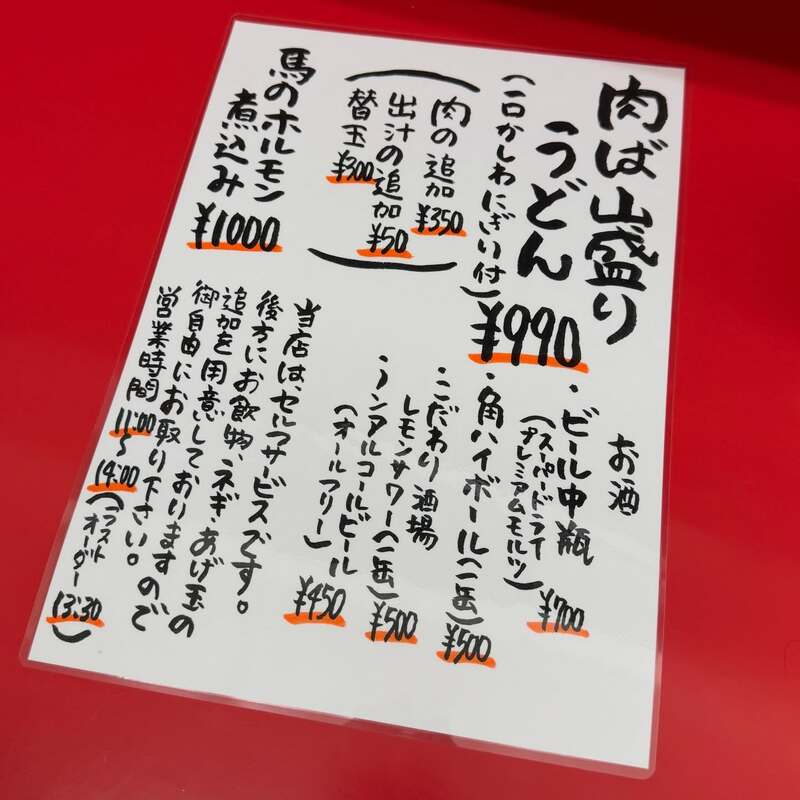 肉ば山盛り
うどん
(一口かしわにぎり付)
¥990
肉の追加
¥350
出汁の追加
¥50
替玉
¥300
馬のホルモン
煮込み
¥1000
お酒
・ビール中瓶
(スーパードライ
プレミアムモルツ)
¥700
・角ハイボール(一缶)
¥500
・こだわり酒場
レモンサワー(一缶)
¥500
・ノンアルコールビール
(オールフリー)
¥450
当店は、セルフサービスです。
後方にお飲物、ネギ、あげ玉の
追加を用意しておりますので
御自由にお取り下さい。
営業時間 11:00
〜
14:00
(ラスト
オーダー
13:30)